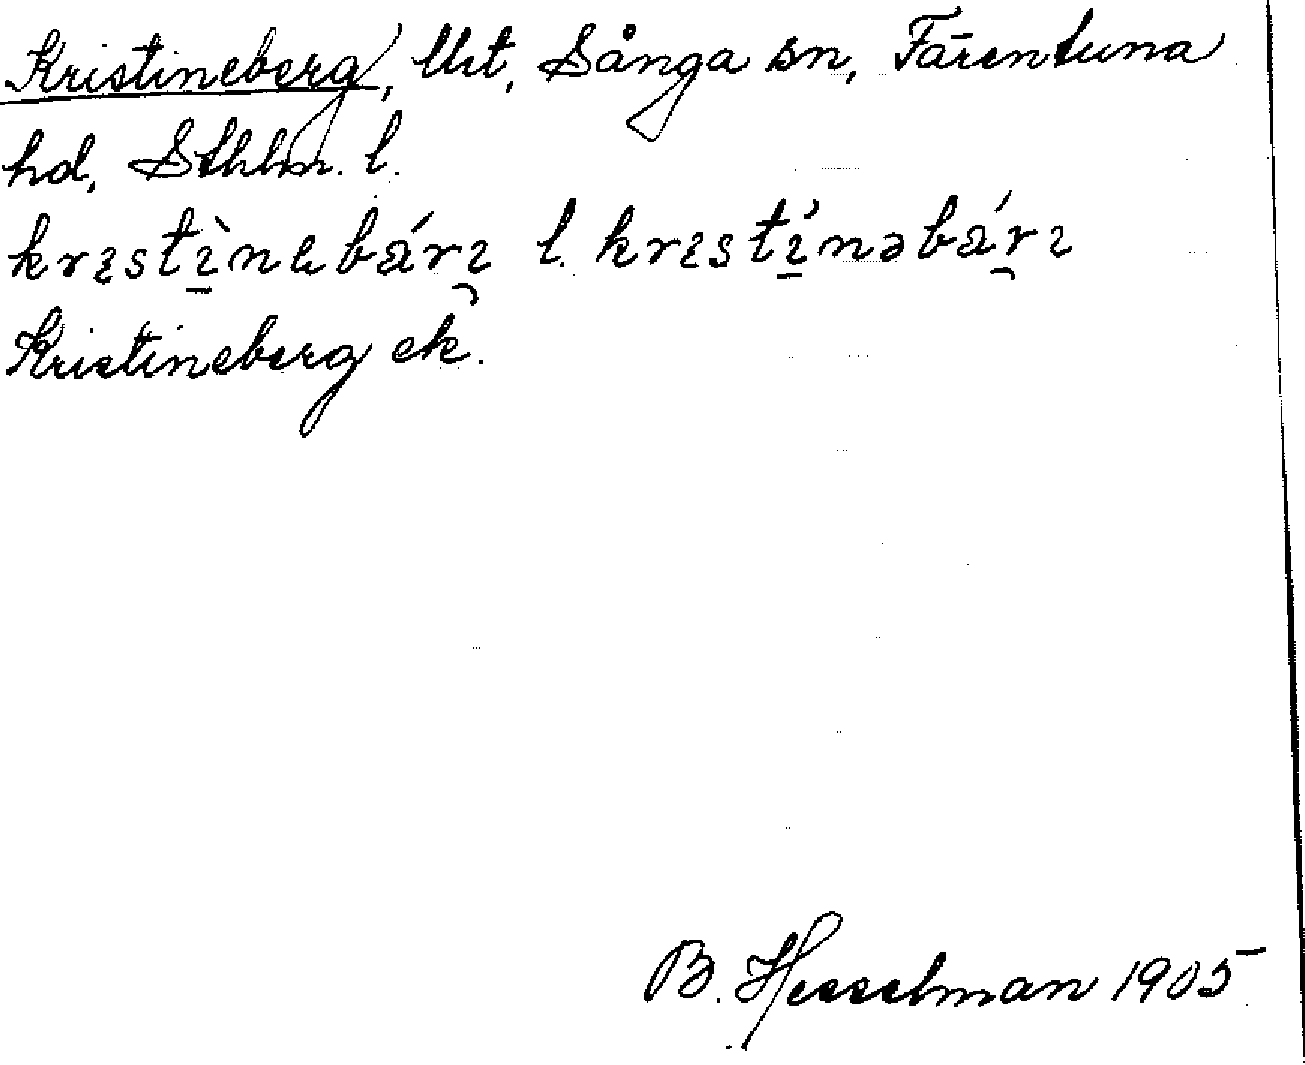 Kristineberg, Utt, Sånga sn, Färentuna
hd, Sthlm. l.
krɪstɪ̀nebá̈rɪ l. krɪstɪ́nəbá̈rɪ
Kristineberg ek.
B. Hesselman 1905